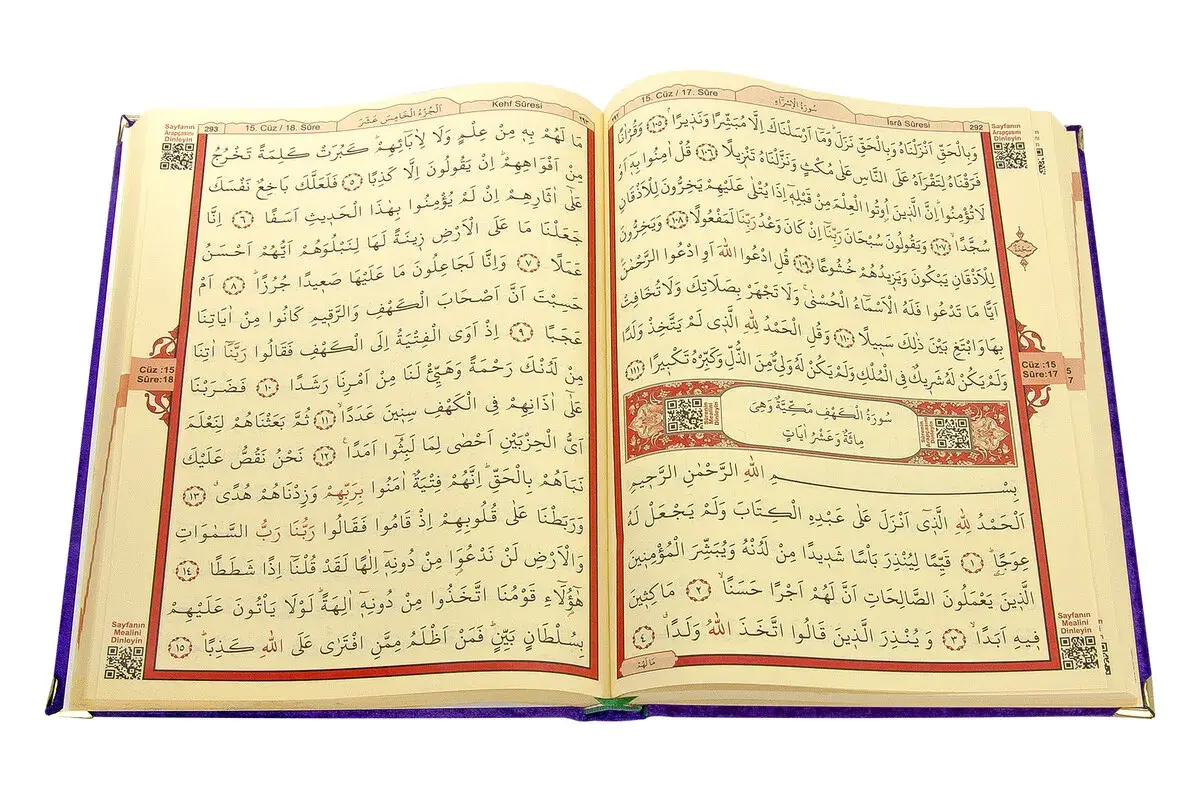 15. Cüz / 17. Sûre
سُورَةُ الْاِسْرَاءِ
İsrâ Sûresi
292
Sayfanın
Arapçasını
Dinleyin
وَبِالْحَقِّ اَنْزَلْنَاهُ وَبِالْحَقِّ نَزَلَۜ وَمَٓا اَرْسَلْنَاكَ اِلَّا مُبَشِّرًا وَنَذ۪يرًاۢ ﴿١٠٥﴾ وَقُرْاٰنًا
فَرَقْنَاهُ لِتَقْرَاَهُ عَلَى النَّاسِ عَلٰى مُكْثٍ وَنَزَّلْنَاهُ تَنْز۪يلًا ﴿١٠٦﴾ قُلْ اٰمِنُوا بِه۪ٓ اَوْ
لَا تُؤْمِنُواۜ اِنَّ الَّذ۪ينَ اُو۫تُوا الْعِلْمَ مِنْ قَبْلِه۪ٓ اِذَا يُتْلٰى عَلَيْهِمْ يَخِرُّونَ لِلْاَذْقَانِ
سُجَّدًاۙ ﴿١٠٧﴾ وَيَقُولُونَ سُبْحَانَ رَبِّنَٓا اِنْ كَانَ وَعْدُ رَبِّنَا لَمَفْعُولًا ﴿١٠٨﴾ وَيَخِرُّونَ
لِلْاَذْقَانِ يَبْكُونَ وَيَز۪يدُهُمْ خُشُوعًا ﴿١٠٩﴾ قُلِ ادْعُوا اللّٰهَ اَوِ ادْعُوا الرَّحْمٰنَۜ
اَيًّا مَا تَدْعُوا فَلَهُ الْاَسْمَٓاءُ الْحُسْنٰىۚ وَلَا تَجْهَرْ بِصَلَاتِكَ وَلَا تُخَافِتْ
بِهَا وَابْتَغِ بَيْنَ ذٰلِكَ سَب۪يلًا ﴿١١٠﴾ وَقُلِ الْحَمْدُ لِلّٰهِ الَّذ۪ي لَمْ يَتَّخِذْ وَلَدًا
وَلَمْ يَكُنْ لَهُ شَر۪يكٌ فِي الْمُلْكِ وَلَمْ يَكُنْ لَهُ وَلِيٌّ مِنَ الذُّلِّ وَكَبِّرْهُ تَكْب۪يرًا ﴿١١١﴾
سُورَةُ الْكَهْفِ مَكِّيَّةٌ وَهِيَ
مِائَةٌ وَعَشْرُ اٰيَاتٍ
بِسْمِ اللّٰهِ الرَّحْمٰنِ الرَّح۪يمِ
اَلْحَمْدُ لِلّٰهِ الَّذ۪ٓي اَنْزَلَ عَلٰى عَبْدِهِ الْكِتَابَ وَلَمْ يَجْعَلْ لَهُ
عِوَجًاۜ ﴿١﴾ قَيِّمًا لِيُنْذِرَ بَاْسًا شَد۪يدًا مِنْ لَدُنْهُ وَيُبَشِّرَ الْمُؤْمِن۪ينَ
الَّذ۪ينَ يَعْمَلُونَ الصَّالِحَاتِ اَنَّ لَهُمْ اَجْرًا حَسَنًاۙ ﴿٢﴾ مَاكِث۪ينَ
ف۪يهِ اَبَدًاۙ ﴿٣﴾ وَيُنْذِرَ الَّذ۪ينَ قَالُوا اتَّخَذَ اللّٰهُ وَلَدًاۗ ﴿٤﴾
مَا لَهُمْ
Cüz :15
Sûre:17
Sayfanın
Mealini
Dinleyin
Sayfanın
Arapçasını
Dinleyin
293
15. Cüz / 18. Sûre
اَلْجُزْءُ الْخَامِسَ عَشَرَ
Kehf Sûresi
مَا لَهُمْ بِه۪ مِنْ عِلْمٍ وَلَا لِاٰبَٓائِهِمْۜ كَبُرَتْ كَلِمَةً تَخْرُجُ
مِنْ اَفْوَاهِهِمْۜ اِنْ يَقُولُونَ اِلَّا كَذِبًا ﴿٥﴾ فَلَعَلَّكَ بَاخِعٌ نَفْسَكَ
عَلٰٓى اٰثَارِهِمْ اِنْ لَمْ يُؤْمِنُوا بِهٰذَا الْحَد۪يثِ اَسَفًا ﴿٦﴾ اِنَّا
جَعَلْنَا مَا عَلَى الْاَرْضِ ز۪ينَةً لَهَا لِنَبْلُوَهُمْ اَيُّهُمْ اَحْسَنُ
عَمَلًا ﴿٧﴾ وَاِنَّا لَجَاعِلُونَ مَا عَلَيْهَا صَع۪يدًا جُرُزًاۜ ﴿٨﴾ اَمْ
حَسِبْتَ اَنَّ اَصْحَابَ الْكَهْفِ وَالرَّق۪يمِ كَانُوا مِنْ اٰيَاتِنَا
عَجَبًا ﴿٩﴾ اِذْ اَوَى الْفِتْيَةُ اِلَى الْكَهْفِ فَقَالُوا رَبَّنَٓا اٰتِنَا
مِنْ لَدُنْكَ رَحْمَةً وَهَيِّئْ لَنَا مِنْ اَمْرِنَا رَشَدًا ﴿١٠﴾ فَضَرَبْنَا
عَلٰٓى اٰذَانِهِمْ فِي الْكَهْفِ سِن۪ينَ عَدَدًاۙ ﴿١١﴾ ثُمَّ بَعَثْنَاهُمْ لِنَعْلَمَ
اَيُّ الْحِزْبَيْنِ اَحْصٰى لِمَا لَبِثُٓوا اَمَدًا۟ ﴿١٢﴾ نَحْنُ نَقُصُّ عَلَيْكَ
نَبَاَهُمْ بِالْحَقِّۜ اِنَّهُمْ فِتْيَةٌ اٰمَنُوا بِرَبِّهِمْ وَزِدْنَاهُمْ هُدًىۗ ﴿١٣﴾
وَرَبَطْنَا عَلٰى قُلُوبِهِمْ اِذْ قَامُوا فَقَالُوا رَبُّنَا رَبُّ السَّمٰوَاتِ
وَالْاَرْضِ لَنْ نَدْعُوَ۬ا مِنْ دُونِه۪ٓ اِلٰهًا لَقَدْ قُلْنَٓا اِذًا شَطَطًا ﴿١٤﴾
هٰٓؤُ۬لَٓاءِ قَوْمُنَا اتَّخَذُوا مِنْ دُونِه۪ٓ اٰلِهَةًۜ لَوْلَا يَاْتُونَ عَلَيْهِمْ
بِسُلْطَانٍ بَيِّنٍۜ فَمَنْ اَظْلَمُ مِمَّنِ افْتَرٰى عَلَى اللّٰهِ كَذِبًاۜ ﴿١٥﴾
Cüz :15
Sûre:18
Sayfanın
Mealini
Dinleyin